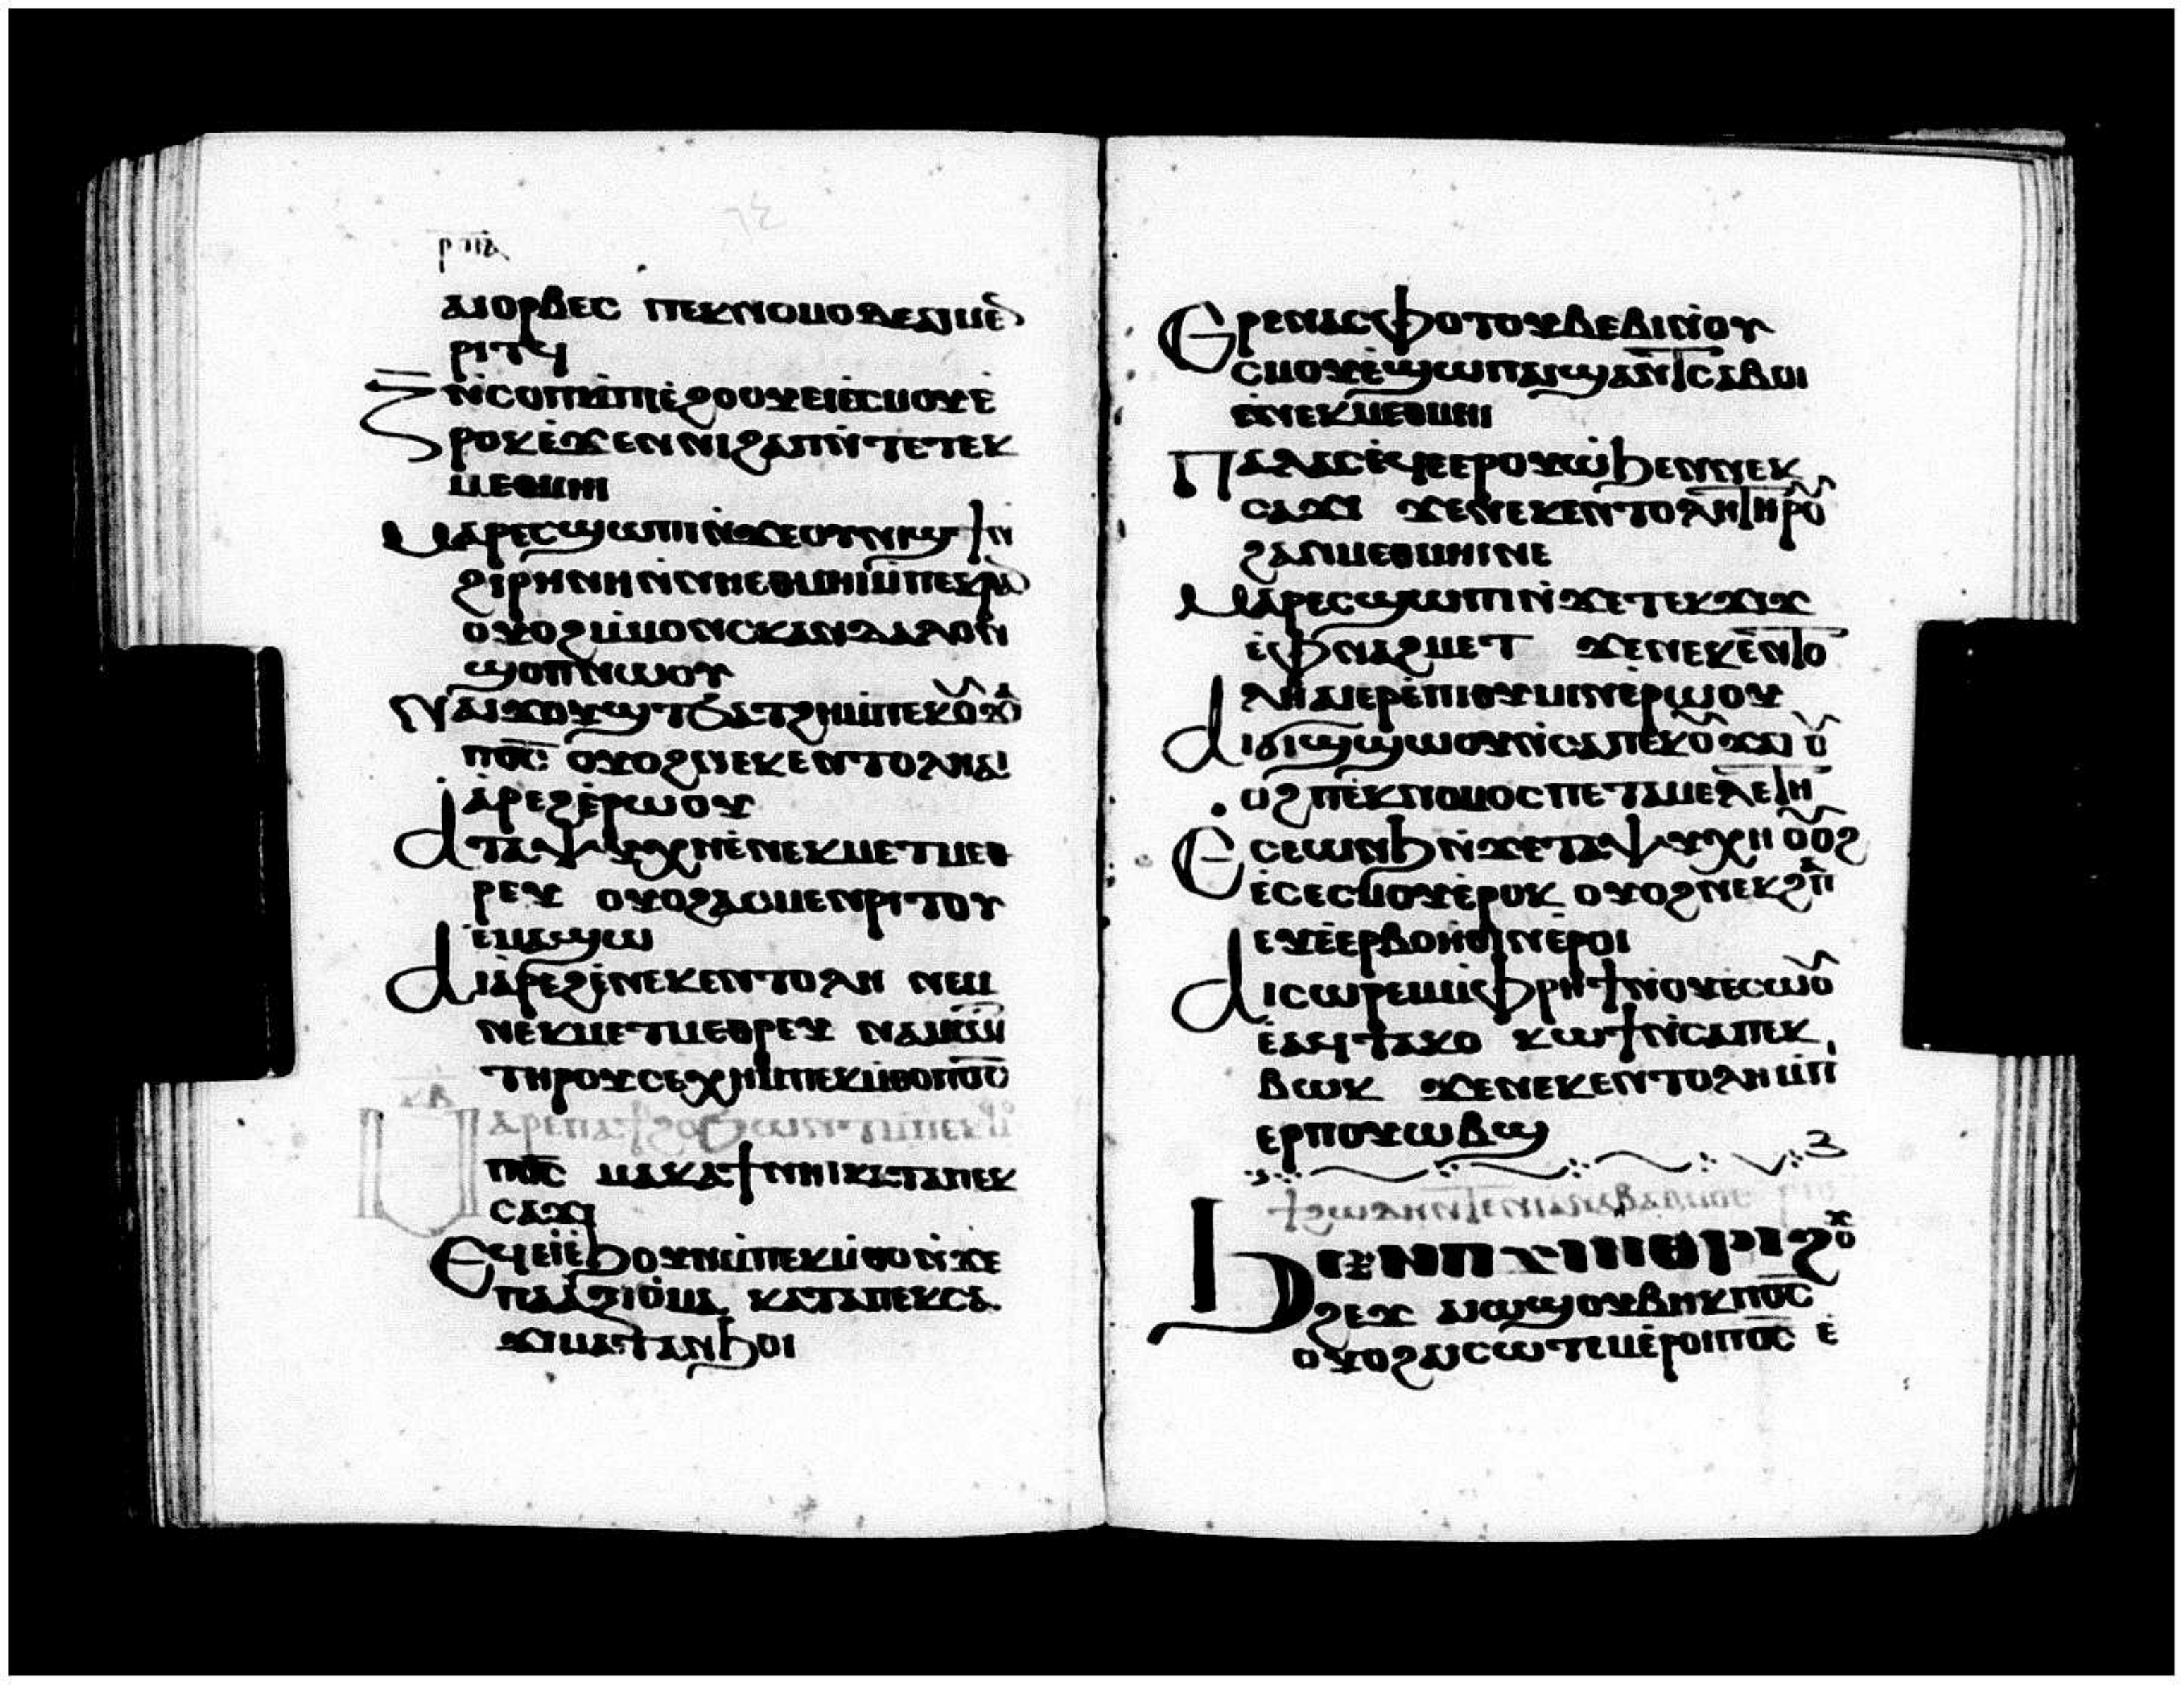 ⲁⲓⲟⲣⲃⲉⲥ ⲡⲉⲕⲛⲟⲙⲟⲥ ⲇⲉ ⲁⲓⲙⲉⲛ
ⲣⲓⲧϥ
ⲍ̅ ⲛ̀ⲥⲟⲡ ⲙ̀ⲡⲓⲉ̀ϩⲟⲟⲩ ⲉⲓⲉ̀ⲥⲙⲟⲩ ⲉ̀
ⲣⲟⲕ ⲉ̀ϫⲉⲛ ⲛⲓϩⲁⲡ ⲛ̀ⲧⲉ ⲧⲉⲕ
ⲙⲉⲑⲙⲏⲓ
ⲙⲁⲣⲉⲥϣⲱⲡⲓ ⲛ̀ϫⲉ ⲟⲩⲛⲓϣϯ ⲛ̀
ϩⲓⲣⲏⲛⲏ ⲛ̀ⲛⲏⲉⲑⲙⲉⲓ ⲙ̀ⲡⲉⲕⲣⲁⲛ
ⲟⲩⲟϩ ⲙ̀ⲙⲟⲛ ⲥⲕⲁⲛⲇⲁⲗⲟⲛ
ϣⲟⲡ ⲛⲱⲟⲩ
ⲛⲁⲓϫⲟⲩϣⲧ ⲉ̀ⲃⲟⲗ ϧⲁⲧϩⲏ ⲙ̀ⲡⲉⲕⲟⲩϫⲁⲓ
ⲡⲟ̅ⲥ̅ ⲟⲩⲟϩ ⲛⲉⲕⲉⲛⲧⲟⲗⲏ ⲁⲓ
ⲁ̀ⲣⲉϩ ⲉ̀ⲣⲱⲟⲩ
ⲁ ⲧⲁⲯⲩⲭⲏ ⲉ̀ⲛⲉⲕⲙⲉⲧⲙⲉⲑ
ⲣⲉⲩ ⲟⲩⲟϩ ⲁⲥⲙⲉⲛⲣⲓⲧⲟⲩ
ⲉ̀ⲙⲁϣⲱ
ⲁⲓⲁ̀ⲣⲉϩ ⲉ̀ⲛⲉⲕⲉⲛⲧⲟⲗⲏ ⲛⲉⲙ
ⲛⲉⲕⲙⲉⲧⲙⲉⲑⲣⲉⲩ ⲛⲁⲙⲱⲓⲧ
ⲧⲏⲣⲟⲩ ⲥⲉⲭⲏ ⲙ̀ⲡⲉⲕⲙ̀ⲑⲟ ⲡⲟ̅ⲥ̅
ⲙⲁⲣⲉ ⲡⲁϯϩⲟ ϧⲱⲛⲧ ⲙ̀ⲡⲉⲕⲙ̀ⲑⲟ
ⲡⲟ̅ⲥ̅ ⲙⲁⲕⲁϯ ⲛⲏⲓ ⲕⲁⲧⲁ ⲡⲉⲕ
ⲥⲁϫⲓ
ⲉϥⲉⲓ̀ ⲉ̀ϧⲟⲩⲛ ⲙ̀ⲡⲉⲕⲙ̀ⲑⲟ ⲛ̀ϫⲉ
ⲡⲁⲁ̀ⲝⲓⲱⲙⲁ ⲕⲁⲧⲁ ⲡⲉⲕⲥⲁ
ϫⲓ ⲙⲁⲧⲁⲛϧⲟⲓ
ⲉⲣⲉ ⲛⲁⲥⲫⲟⲧⲟⲩ ⲃⲉⲃⲓ ⲛ̀ⲟⲩ
ⲥⲙⲟⲩ ⲉ̀ϣⲱⲡ ⲁⲕϣⲁⲛⲧⲥⲁⲃⲟⲓ
ⲉ̀ⲛⲉⲕⲙⲉⲑⲙⲏⲓ
ⲡⲁⲗⲁⲥ ⲉϥⲉⲉⲣⲟⲩⲱ̀ ϧⲉⲛ ⲛⲉⲕ
ⲥⲁϫⲓ ϫⲉ ⲛⲉⲕⲉⲛⲧⲟⲗⲏ ⲧⲏⲣⲟⲩ
ϩⲁⲛⲙⲉⲑⲙⲏⲓ ⲛⲉ
ⲙⲁⲣⲉⲥϣⲱⲡⲓ ⲛ̀ϫⲉ ⲧⲉⲕϫⲓϫ
ⲉ̀ⲫⲛⲁϩⲙⲉⲧ ϫⲉ ⲛⲉⲕⲉⲛⲧⲟ
ⲗⲏ ⲁⲓⲉⲣⲉ̀ⲡⲓⲑⲩⲙⲓⲛ ⲉ̀ⲣⲱⲟⲩ
ⲁⲓϭⲓϣϣⲱⲟⲩ ⲛ̀ⲥⲁ ⲡⲉⲕⲟⲩϫⲁⲓ ⲟⲩ
ⲟϩ ⲡⲉⲕⲛⲟⲙⲟⲥ ⲡⲉ ⲧⲁⲙⲉⲗⲉⲧⲏ
ⲉⲥⲉⲱⲛϧ ⲛ̀ϫⲉ ⲧⲁⲯⲩⲭⲏ ⲟⲩⲟϩ
ⲉⲥⲉⲥⲙⲟⲩ ⲉ̀ⲣⲟⲕ ⲟⲩⲟϩ ⲛⲉⲕϩⲁⲡ
ⲉⲩⲉⲉⲣⲃⲟⲏⲑⲓⲛ ⲉ̀ⲣⲟⲓ
ⲁⲓⲥⲱⲣⲉⲙ ⲙ̀ⲫⲣⲏϯ ⲛ̀ⲟⲩⲉⲥⲱⲟⲩ
ⲉ̀ⲁϥⲧⲁⲕⲟ ⲕⲱϯ ⲛ̀ⲥⲁ ⲡⲉⲕ
ⲃⲱⲕ ϫⲉ ⲛⲉⲕⲉⲛⲧⲟⲗⲏ ⲙ̀ⲡ
ⲉⲣⲡⲟⲩⲱⲃϣ
ϯϩⲱⲇⲏ ⲛ̀ⲧⲉ ⲛⲓⲁⲛⲁⲃⲁⲑⲙⲟⲥ
ϧⲉⲛ ⲡϫⲓⲛⲑⲣⲓϩⲟϫ
ϩⲉϫ ⲁⲓⲱϣ ⲟⲩⲃⲏⲕ ⲡⲟ̅ⲥ̅
ⲟⲩⲟϩ ⲁⲕⲥⲱⲧⲉⲙ ⲉ̀ⲣⲟⲓ ⲡⲟ̅ⲥ̅ ⲉ̀